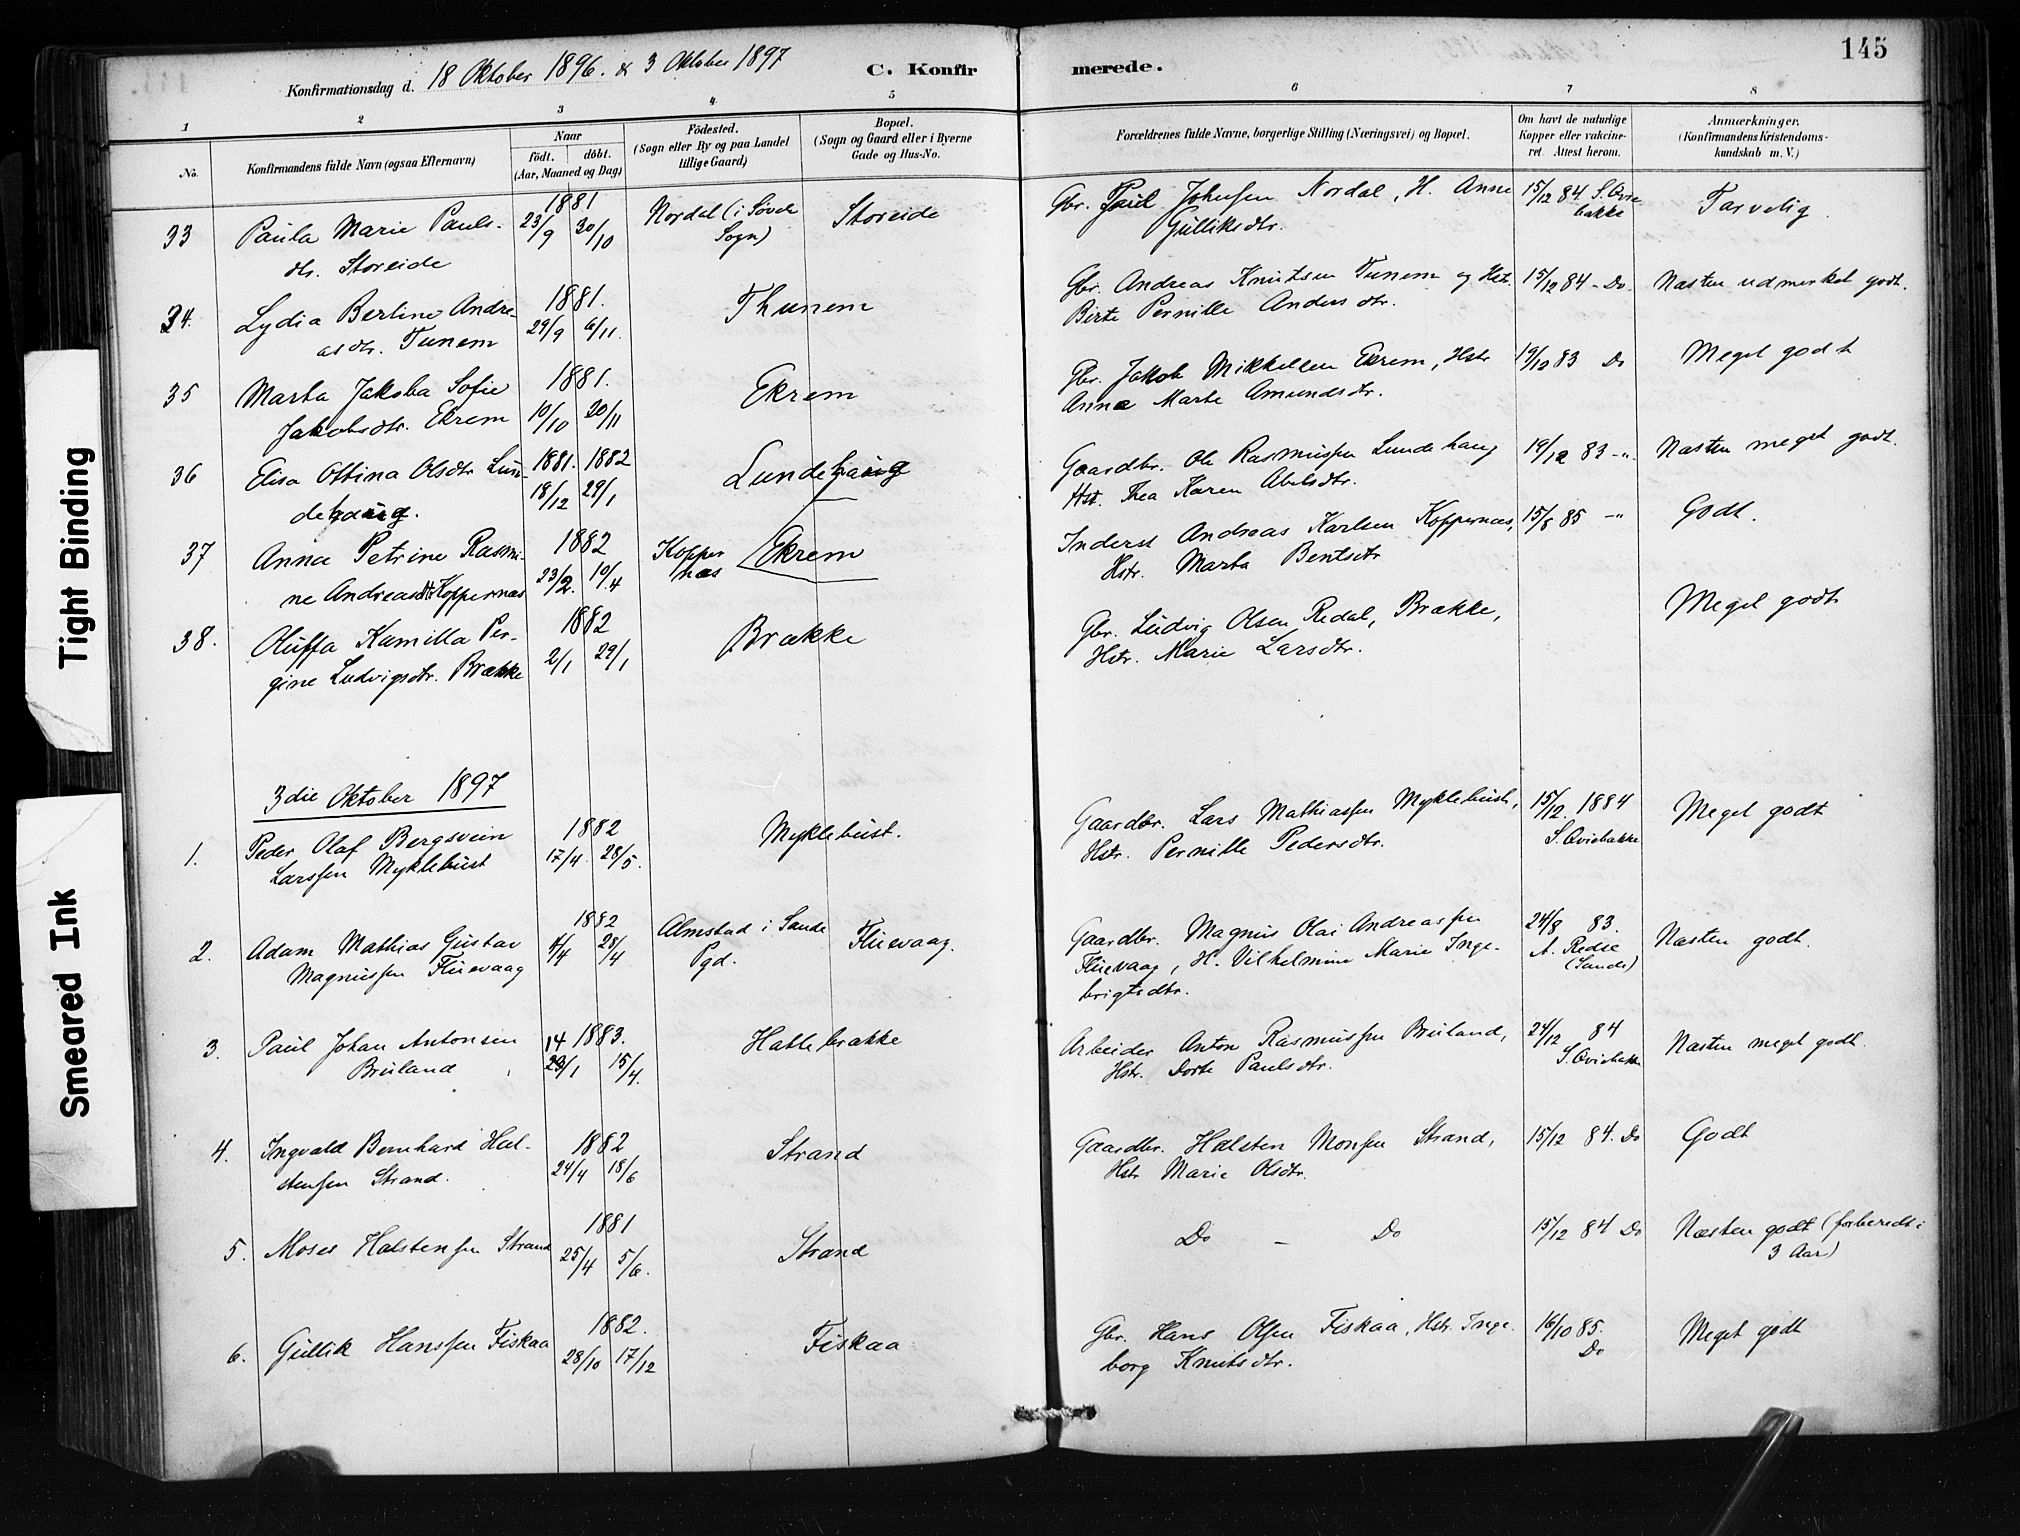 145
Konfirmationsdag d. 18 Oktober 1896. & 3 Oktober 1897 C. Konfirmerede.
1 2 3 4 5 6 7 8
No.
Konfirmandens fulde Navn (ogsaa Efternavn)
Naar
födt. döbt.
(Aar, Maaned og Dag)
Födested.
(Sogn eller By og paa Landet
tillige Gaard)
Bopæl.
(Sogn og Gaard eller i Byerne
Gade og Hus-No.
Forældrenes fulde Navne, borgerlige Stilling (Næringsvei) og Bopæl.
Om havt de naturlige
Kopper eller vakcine-
ret. Attest herom.
Anmærkninger.
(Konfirmandens Kristendoms-
kundskab m. V.)
33 Paula Marie Pauls-
dtr. Storeide
1881
23/9 30/10
Nordal (i Søvde
Sogn)
Storeide
Gbr. Paul Johnsen Nordal, H. Anne
Gulliksdtr.
15/12 84 S.
bakke
Tarvelig.
34. Lydia Berline Andre-
asdtr. Tunem
1881.
29/9 6/11.
Thunem
Gbr. Andreas Knutsen Tunem og Hst.
Birte Pernille Andersdtr.
15/12 84 - Do.
Næsten udmerket godt.
35 Marta Jakoba Sofie
Jakobsdtr. Ekrem
1881.
10/10 20/11
Ekrem
Gbr. Jakob Mikkelsen Ekrem, Hstr
Anne Marte Amundsdtr.
19/12 83 Do
Meget godt
36 Elisa Ottina Olsdtr Lun-
dehaug.
1881. 1882
18/12 29/1
Lundehaug
Gaardbr. Ole Rasmussen Lundehaug
Hst. Thea Karen Abelsdtr.
19/12 83 -"-
Næsten meget godt.
37 Anna Petrine Rasmi-
ne Andreasdtr Koppernæs
1882
23/2. 10/4
Kopper
næs
Ekrem
Inderst Andreas Karlsen Koppernæs,
Hstr. Marta Bentsdtr
15/8 85 -"
Godt.
38. Oluffa Kamilla Per-
gine Ludvigsdtr. Brække
1882
2/1 29/1
Brække
Gbr. Ludvig Olsen Redal, Brække,
Hstr. Marie Larsdtr.
Meget godt
3die Oktober 1897
1. Peder Olaf Bergsvein
Larssen Myklebust
1882
17/4 28/5.
Myklebust.
Gaardbr. Lars Mathiassen Myklebust,
Hstr. Pernille Pedersdtr.
15/12. 1884
S. Qviebakke
Meget godt
2. Adam Mathias Gustav
Magnussen Fluevaag
1882
4/4 28/4
Almstad i Sande
Pgd.
Fluevaag.
Gaardbr. Magnus Olai Andreassen
Fluevaag, H. Vilhelmine Marie Inge-
brigtsdtr.
24/8 83.
A. Redse
(Sande)
Næsten godt.
3. Paul Johan Antonsen
Bruland
14 1883.
23/1 15/4.
Hattebrække
Arbeider Anton Rasmussen Bruland,
Hstr. Dorte Paulsdtr.
24/12 84
S. Qviebakke
Næsten meget godt.
4. Ingvald Bernhard Hal-
stensen Strand.
1882
24/4 18/6
Strand
Gaardbr. Halsten Monsen Strand,
Hstr Marie Olsdtr.
15/12 84. Do
Godt
5. Moses Halstensen Strand
1881
25/4 5/6.
Strand
Do - Do
15/12 84 Do
Næsten godt (forberedt i
3 Aar)
6. Gullik Hanssen Fiskaa
1882.
28/10 17/12
Fiskaa
Gbr. Hans Olsen Fiskaa, Hstr. Inge-
borg Knutsdtr.
16/10 85.
Do
Meget godt
Tight Binding
Smeared Ink